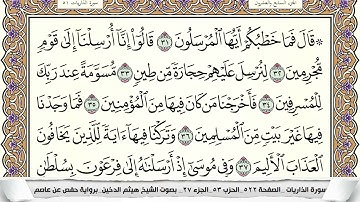 الجزء السابع والعشرون سورة الذاريات ٥١
۞ قَالَ فَمَا خَطْبُكُمْ أَيُّهَا ٱلْمُرْسَلُونَ ٣١ قَالُوٓا۟ إِنَّآ أُرْسِلْنَآ إِلَىٰ قَوْمٍ
مُّجْرِمِينَ ٣٢ لِنُرْسِلَ عَلَيْهِمْ حِجَارَةً مِّن طِينٍ ٣٣ مُّسَوَّمَةً عِندَ رَبِّكَ
لِلْمُسْرِفِينَ ٣٤ فَأَخْرَجْنَا مَن كَانَ فِيهَا مِنَ ٱلْمُؤْمِنِينَ ٣٥ فَمَا وَجَدْنَا
فِيهَا غَيْرَ بَيْتٍ مِّنَ ٱلْمُسْلِمِينَ ٣٦ وَتَرَكْنَا فِيهَآ ءَايَةً لِّلَّذِينَ يَخَافُونَ
ٱلْعَذَابَ ٱلْأَلِيمَ ٣٧ وَفِى مُوسَىٰٓ إِذْ أَرْسَلْنَٰهُ إِلَىٰ فِرْعَوْنَ بِسُلْطَٰنٍ
سورة الذاريات _الصفحة ٥٢٢ _الحزب ٥٣ _الجزء ٢٧ _ بصوت الشيخ هيثم الدخين _ برواية حفص عن عاصم